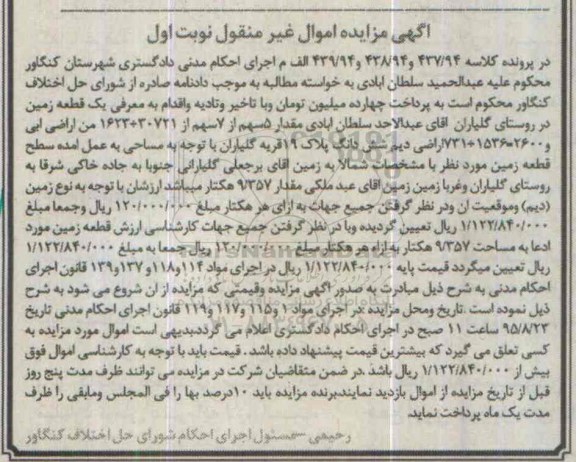 آگهی مزایده اموال غیر منقول نوبت اول
در پرونده کلاسه ۴۳۷/۹۴ و ۴۳۸/۹۴ و ۴۳۹/۹۴ الف م اجرای احکام مدنی دادگستری شهرستان کنگاور
محکوم علیه عبدالحمید سلطان ابادی به خواسته مطالبه به موجب دادنامه صادره از شورای حل اختلاف
کنگاور محکوم است به پرداخت چهارده میلیون تومان وبا تاخیر وتادیه واقدام به معرفی یک قطعه زمین
در روستای گلیاران آقای عبدالاحد سلطان ابادی مقدار ۵سهم از ۷سهم از ۳۰۷۲۱+۱۶۲۳ من اراضی ابی
و۲۶۰۰=۱۵۳۶+۷۳۱اراضی دیم شش دانگ پلاک ۱۹قریه گلیاران با توجه به مساحی به عمل امده سطح
قطعه زمین مورد نظر با مشخصات شمالا به زمین اقای برجعلی گلیارانی جنوبا به جاده خاکی شرقا به
روستای گلیاران وغربا زمین زمین اقای عبد ملکی مقدار ۹/۳۵۷ هکتار میباشد ارزشان با توجه به نوع زمین
(دیم) وموقعیت ان ودر نظر گرفتن جمیع جهات به ازای هر هکتار مبلغ ۱۲۰/۰۰۰/۰۰۰ ریال وجمعا مبلغ
۱/۱۲۲/۸۴۰/۰۰۰ ریال تعیین گردیده وبا در نظر گرفتن جمیع جهات کارشناسی ارزش قطعه زمین مورد
ادعا به مساحت ۹/۳۵۷ هکتار به ازاء هر هکتار مبلغ ۱۲۰/۰۰۰/۰۰۰ ریال جمعا به مبلغ ۱/۱۲۲/۸۴۰/۰۰۰
ریال تعیین میگردد قیمت پایه ۱/۱۲۲/۸۴۰/۰۰۰ ریال در اجرای مواد ۱۱۴و۱۱۸و ۱۳۷و۱۳۹ قانون اجرای
احکام مدنی به شرح ذیل مبادرت به صدور آگهی مزایده وقیمتی که مزایده از ان شروع می شود به شرح
ذیل نموده است .تاریخ ومحل مزایده :در اجرای مواد ۱ و۱۱۵ و۱۱۷ و۱۱۹ قانون اجرای احکام مدنی تاریخ
۹۵/۸/۲۳ ساعت ۱۱ صبح در اجرای احکام دادگستری اعلام می گرددبدیهی است اموال مورد مزایده به
کسی تعلق می گیرد که بیشترین قیمت پیشنهاد داده باشد . قیمت باید با توجه به کارشناسی اموال فوق
بیش از ۱/۱۲۲/۸۴۰/۰۰۰ ریال باشد .در ضمن متقاضیان شرکت در مزایده می توانند ظرف مدت پنج روز
قبل از تاریخ مزایده از اموال بازدید نمایندبرنده مزایده باید ۱۰درصد بها را فی المجلس ومابقی را ظرف
مدت یک ماه پرداخت نماید.
رحیمی –مسئول اجرای احکام شورای حل اختلاف کنگاور